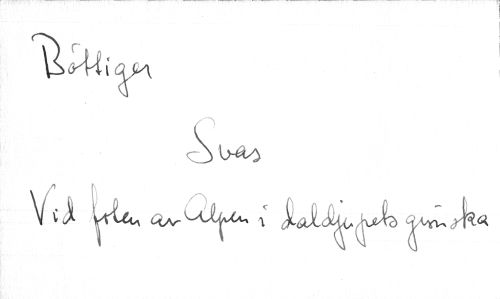 Böttiger
Svar
Vid foten av Alpen i daldjupets grönska